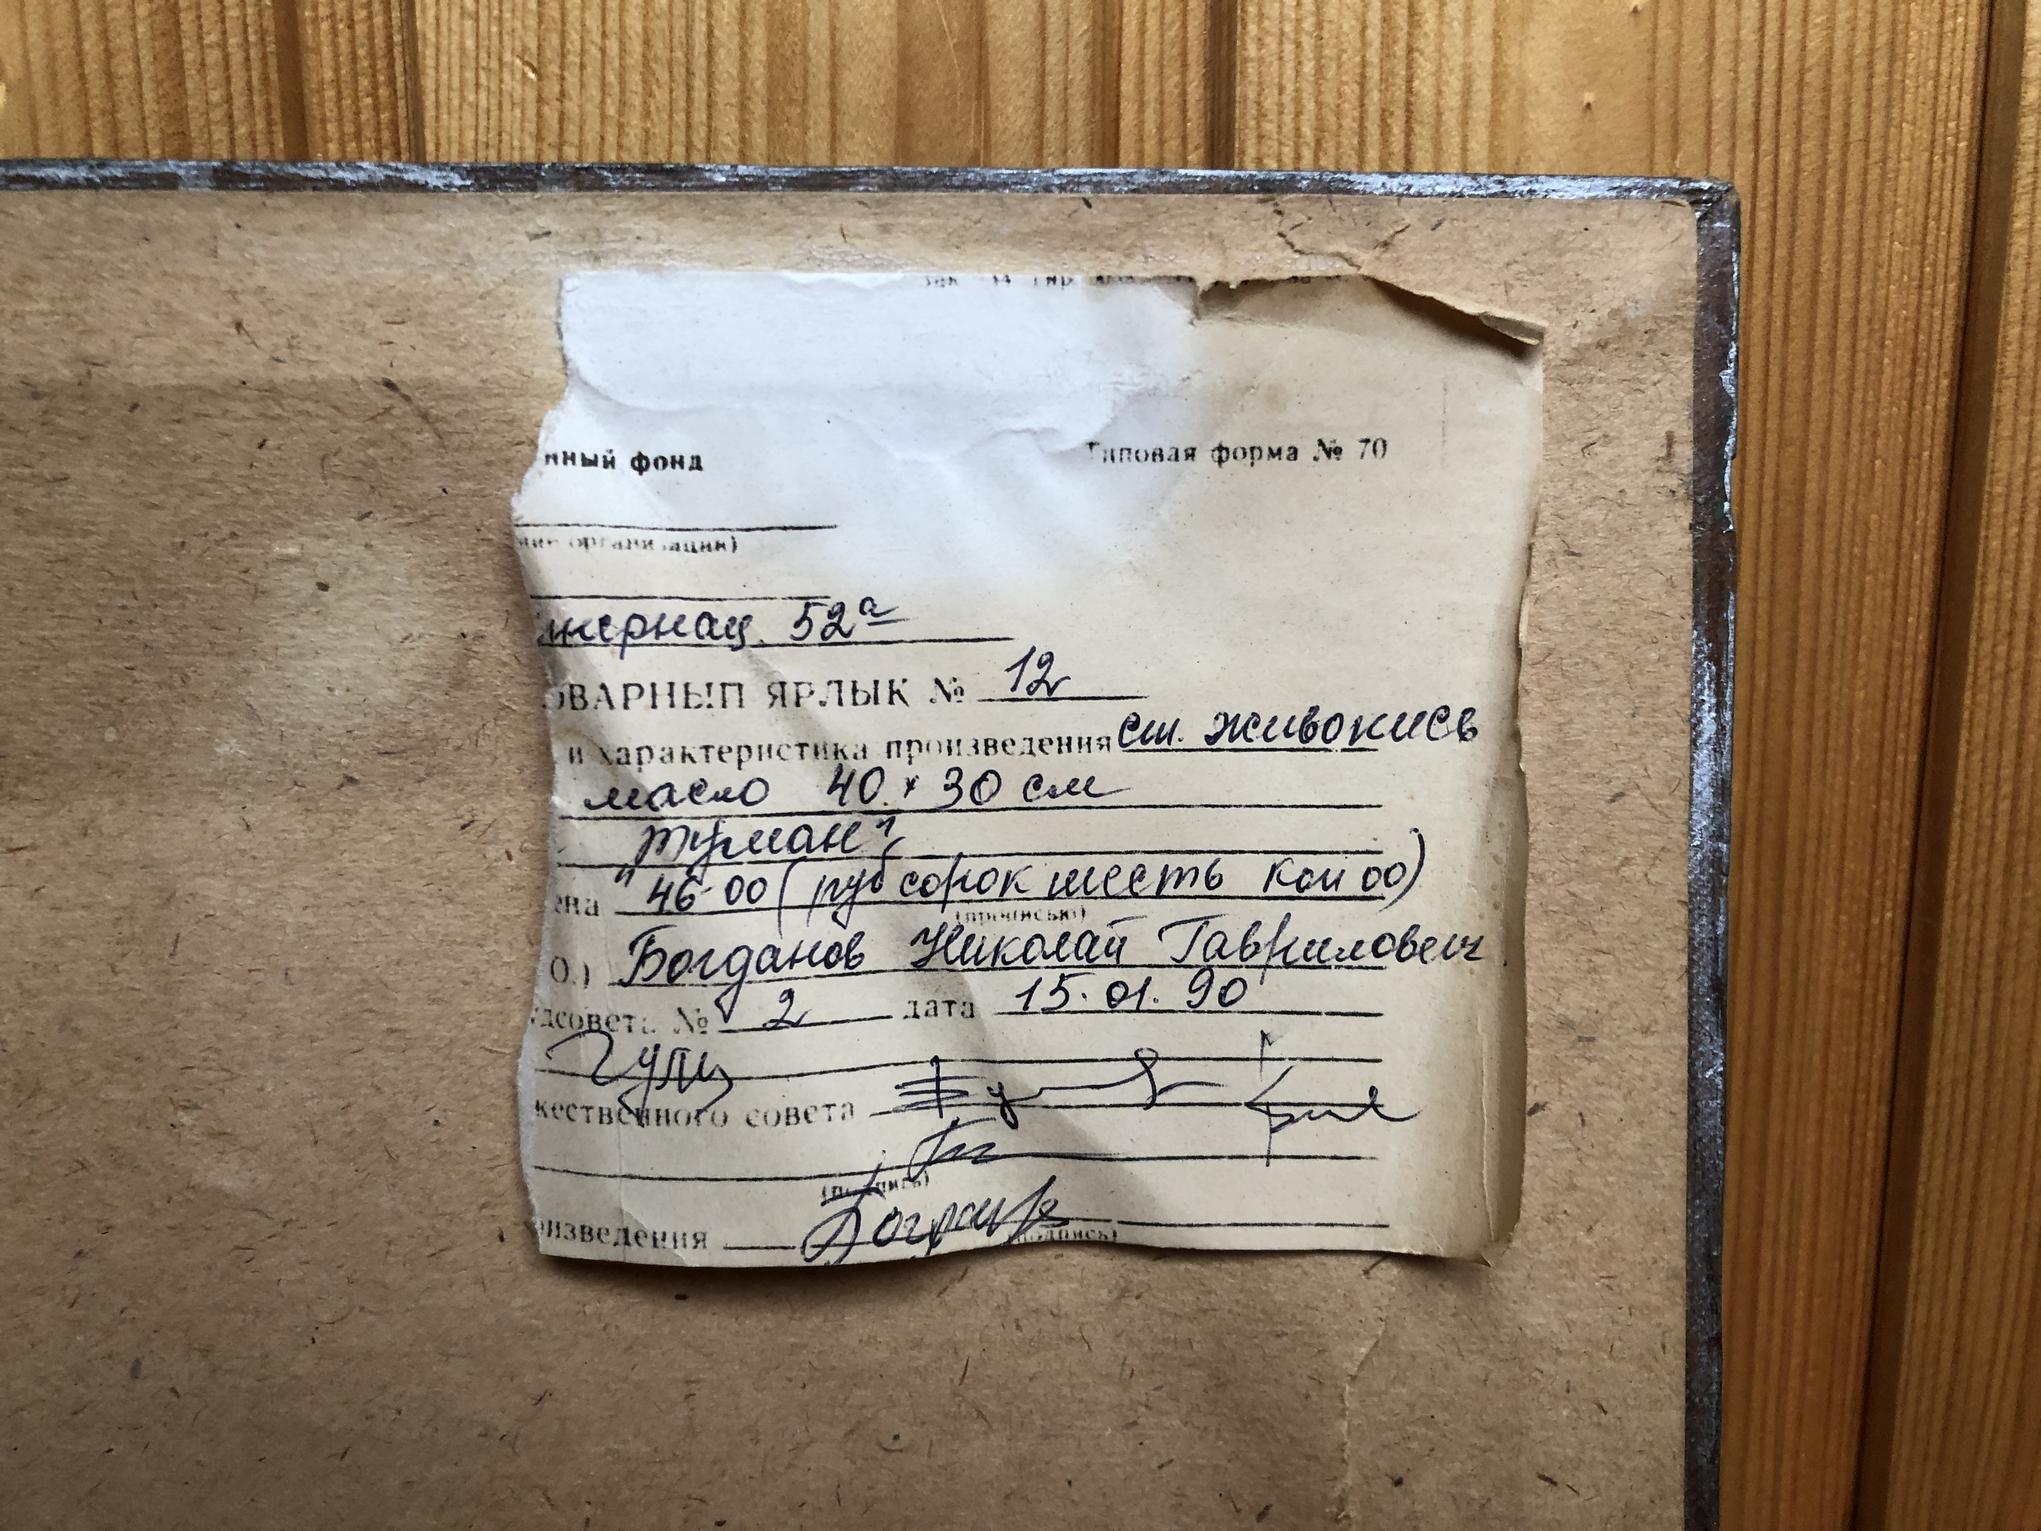 нный фонд
Типовая форма № 70
ние организации)
интернац. 52а
ОВАРНЫЙ ЯРЛЫК № 12
и характеристика произведения ст. живопись
масло 40 × 30 см
"Туман"
ена 46-00 (руб сорок шесть коп 00)
(прописью)
О.) Богданов Николай Гаврилович
дсовета № 2 дата 15.01.90
жественного совета
(подпись)
оизведения
(подпись)